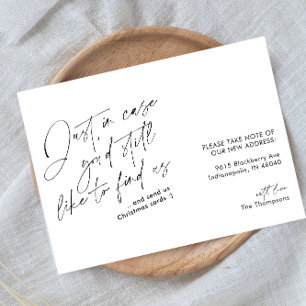 Just in case
you'd still
like to find us
... and send us
Christmas cards :)
PLEASE TAKE NOTE OF
OUR NEW ADDRESS:
9615 Blackberry Ave
Indianapolis, IN 46040
with love
The Thompsons